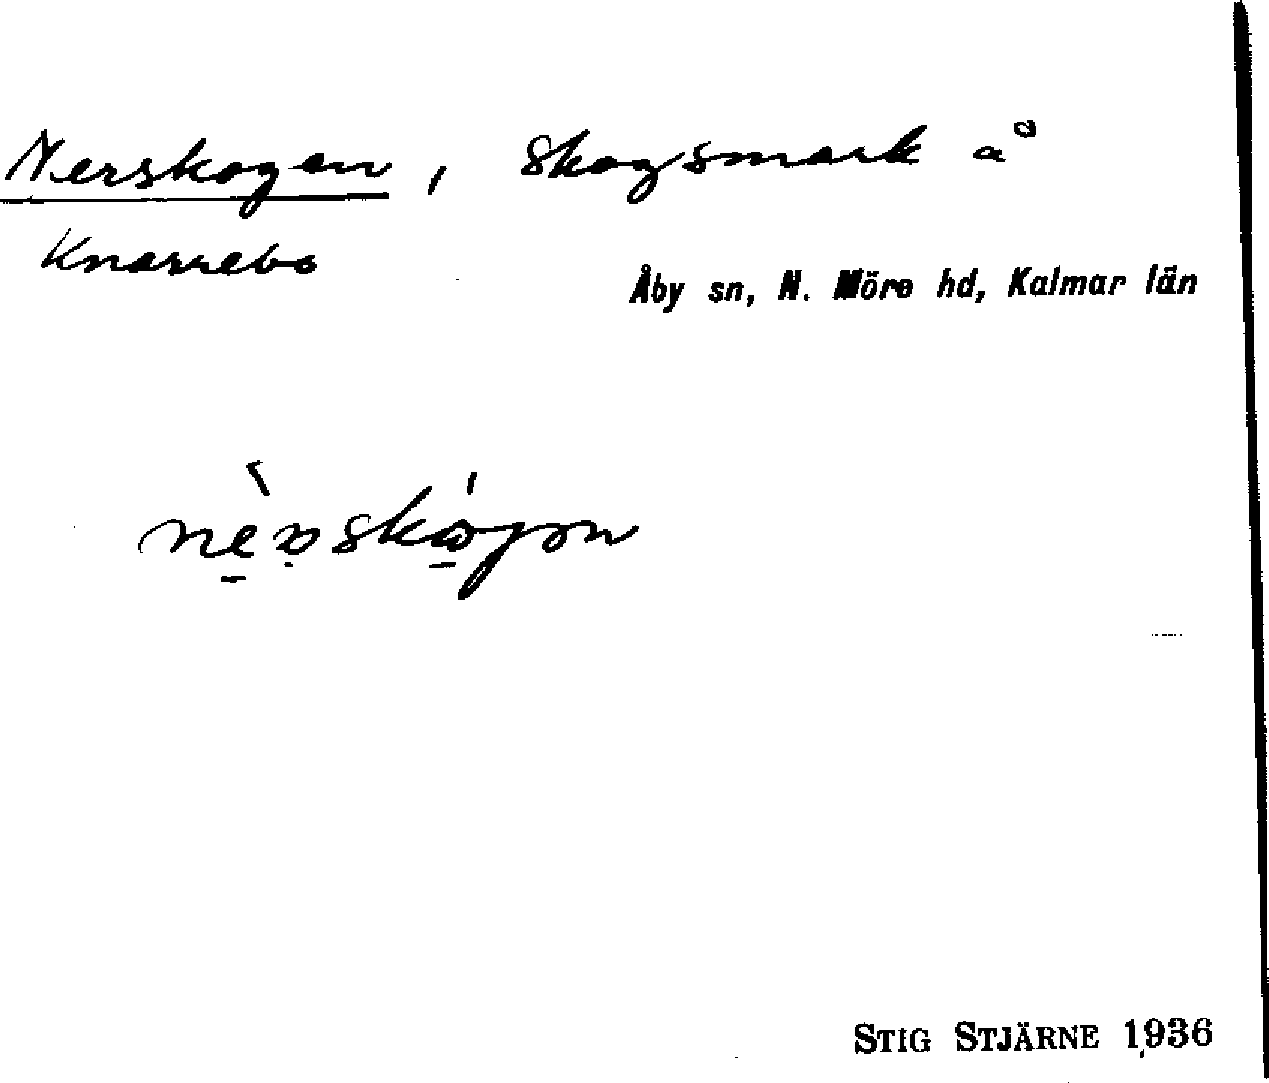 Nerskogen, Skogsmark å
Knarrebo
Åby sn, N. Möre hd, Kalmar län
STIG STJÄRNE 1936